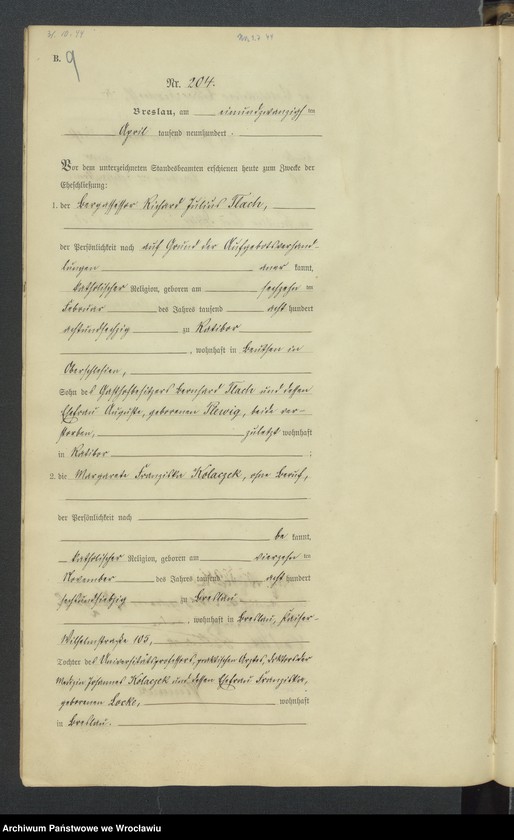 B. 9
Nr. 204.
Breslau, am einundzwanzigsten
April tausend neunhundert
Vor dem unterzeichneten Standesbeamten erschienen heute zum Zwecke der
Eheschließung:
1. der Bergassessor Richard Julius Flach,
der Persönlichkeit nach auf Grund der Aufgebotsverhand
lungen aner kannt,
katholischer Religion, geboren am sechzehn ten
Februar des Jahres tausend acht hundert
achtundsechzig zu Ratibor
, wohnhaft in Beuthen in
Oberschlesien,
Sohn des Gasthofbesitzers Bernhard Flach und dessen
Ehefrau Auguste, geborenen Klewig, beide ver-
storben, zuletzt wohnhaft
in Ratibor ;
2. die Margarete Franziska Kolaczek, ohne Beruf,
der Persönlichkeit nach
be kannt,
katholischer Religion, geboren am vierzehn ten
November des Jahres tausend acht hundert
sechsundsiebzig zu Breslau
, wohnhaft in Breslau, Kaiser-
Wilhelmstraße 105,
Tochter des Universitätsprofessors, praktischen Arztes, Doktors der
Medizin Johannes Kolaczek und dessen Ehefrau Franziska,
geborenen Locke, wohnhaft
in Breslau.
Archiwum Państwowe we Wrocławiu